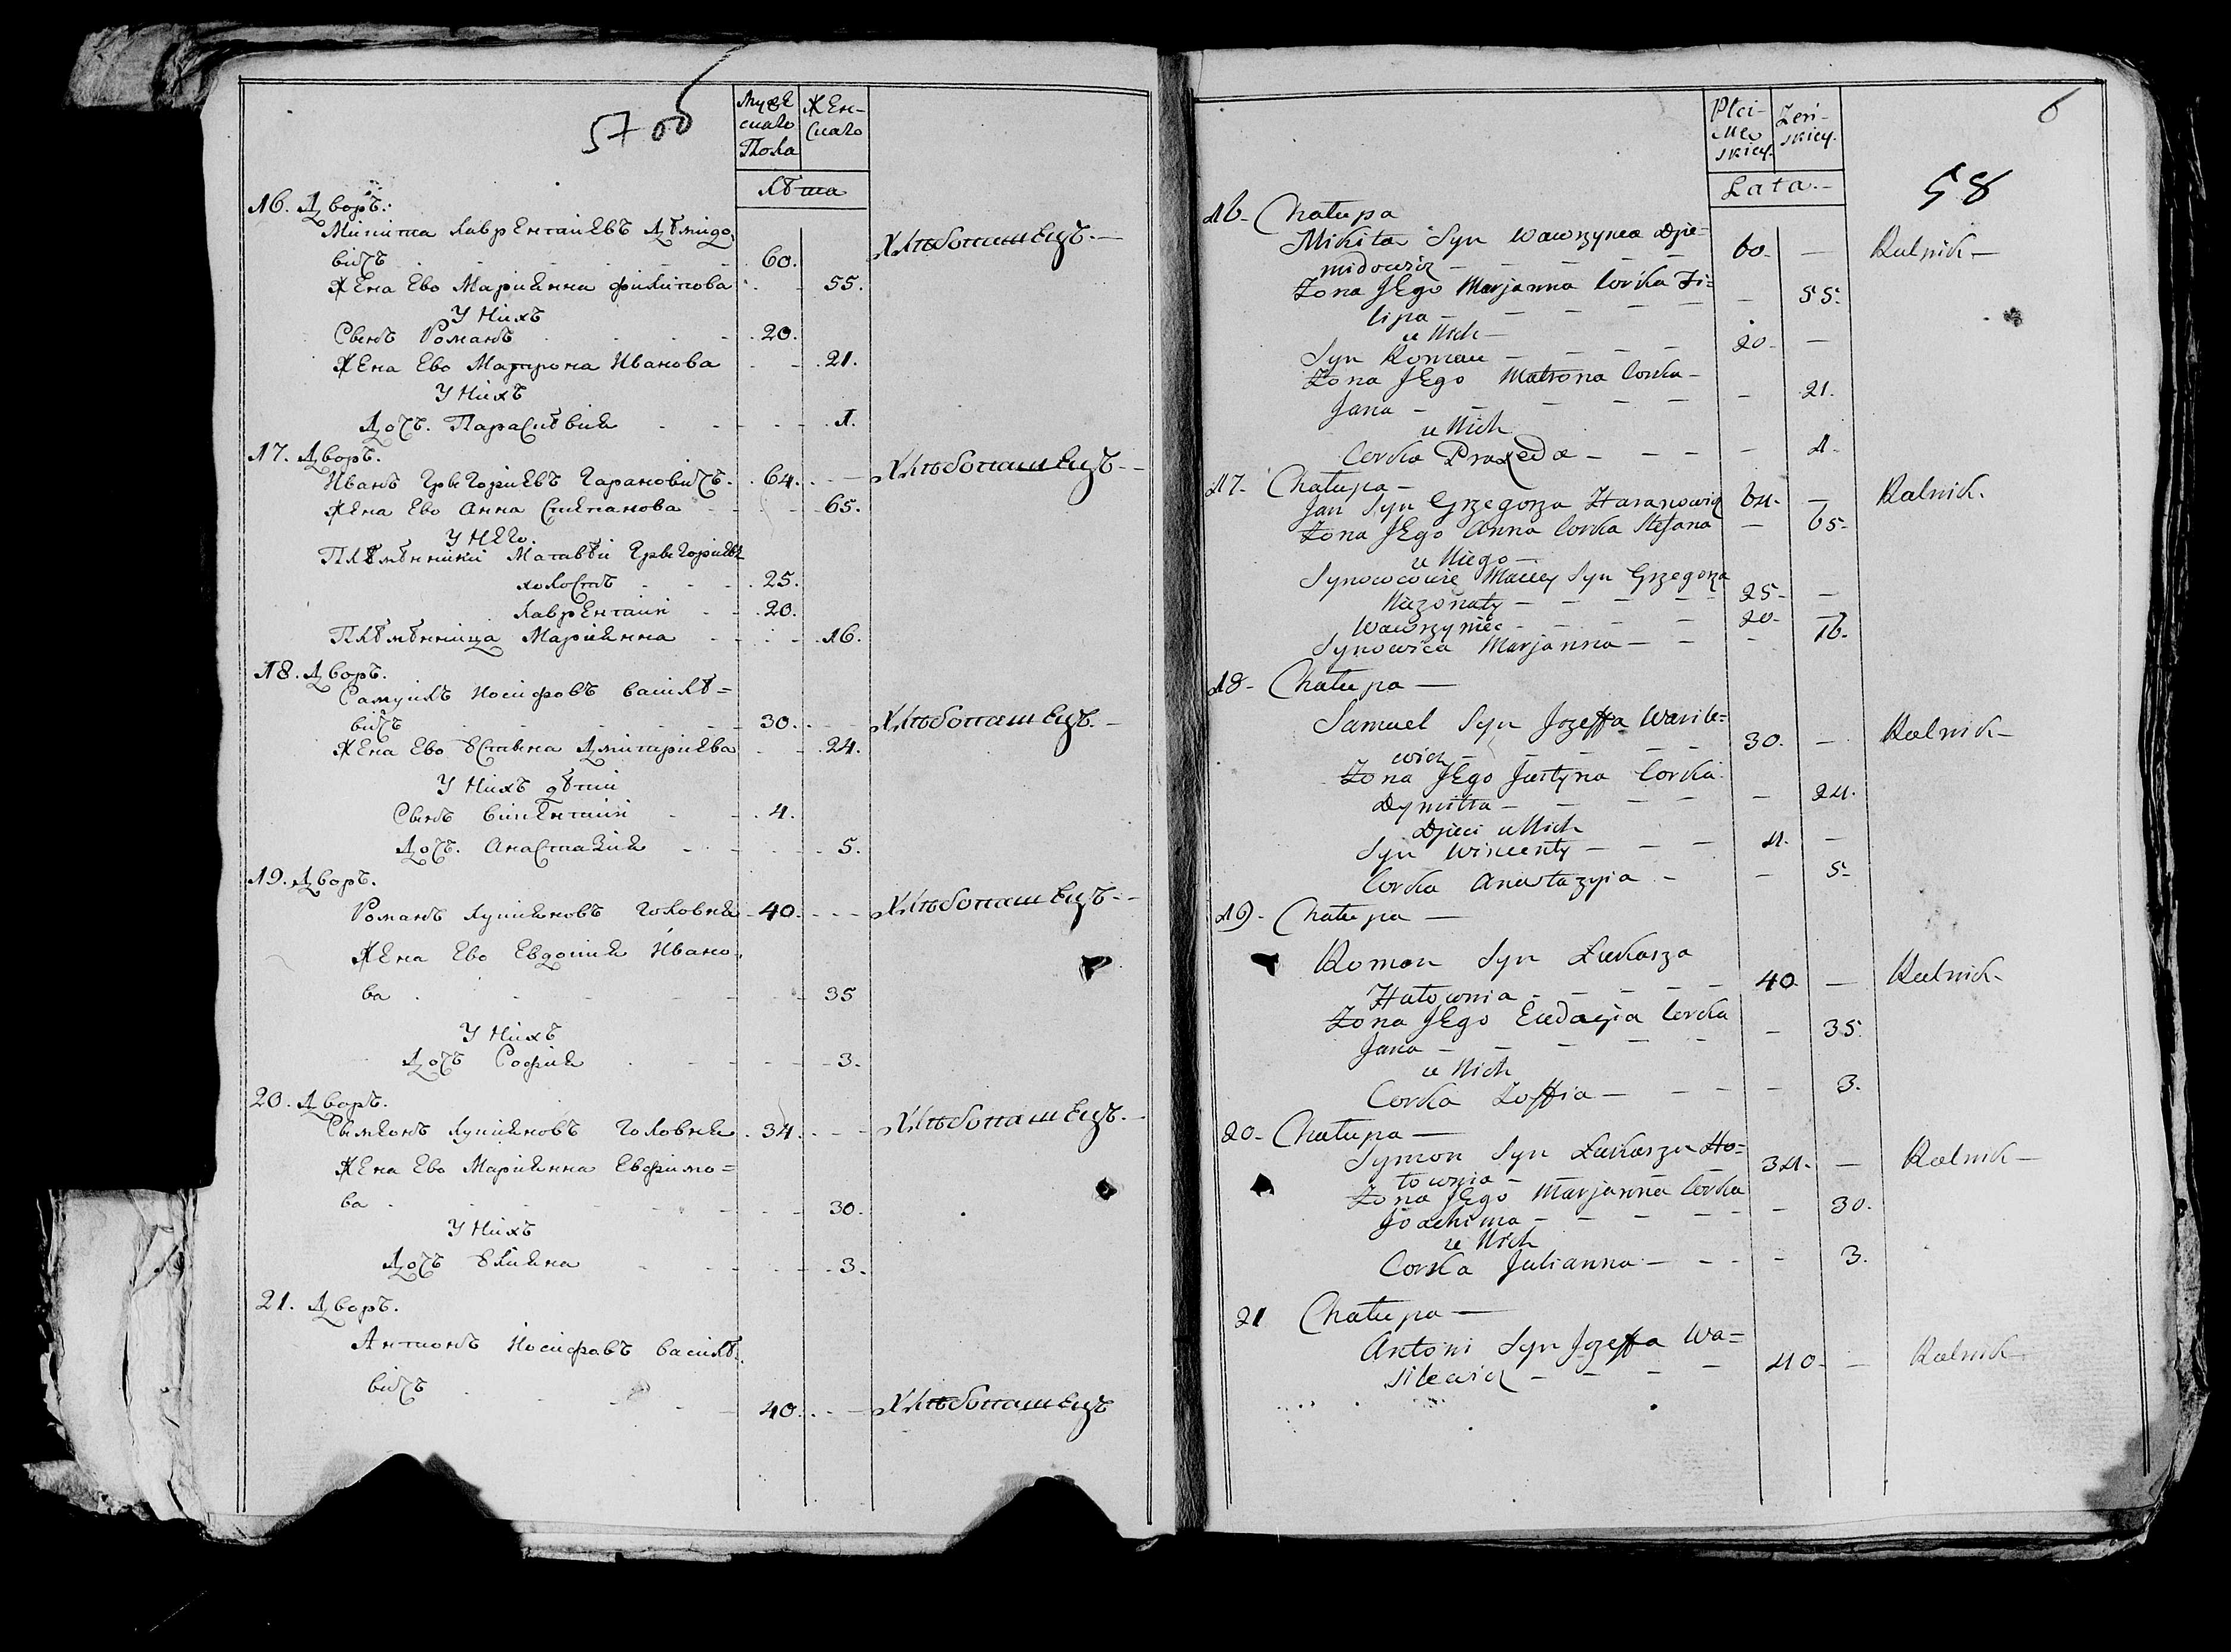 57 об
Мужескаго Пола
Женскаго
лѣта
16. Дворъ:
Микита Лаврентаиевъ Дѣмидо
вичъ 60. Хлѣбопашецъ.
Жена Ево Марианна Филипова 55.
У Нихъ
Сынъ Романъ 20.
Жена Ево Матрона Иванова 21.
У Нихъ
Дочь. Параскѣвия 1.
17. Дворъ.
Иванъ Григориевъ Гарановичъ. 64. Хлѣбопашецъ
Жена Ево Анна Степанова 65.
У Него.
Плѣмѣнники Матвѣй Григориевъ
холостъ 25.
Лаврентаий 20.
Плѣмѣнница Марианна 16.
18. Дворъ.
Самуилъ Иосифовъ Василѣ=
вичъ 30. Хлѣбопашецъ.
Жена Ево Юстына Дмитриева 24.
У Нихъ дѣти
Сынъ Викентаий 4.
Дочь. Анастазия 5.
19. Дворъ.
Романъ Лукиановъ Головня 40. Хлѣбопашецъ
Жена Ево Евдокия Ивано-
ва 35
У Нихъ
Дочь София 3.
20. Дворъ.
Сымионъ Лукиановъ Головня 34. Хлѣбопашецъ.
Жена Ево Марианна Евфимо=
ва 30.
У Нихъ
Дочь Юлияна 3.
21. Дворъ.
Антонъ Иосифовъ Василѣ-
вичъ 40. Хлѣбопашецъ
6
Płci Męskiey.
Żeńskiey.
Lata.
58
16. Chałupa
Mikita Syn Wawrzynca Dzie=
midowicz 60. Rolnik
Żona Jego Marjanna Corka Fi=
lipa 55.
u Nich
Syn Roman 20.
Żona Jego Matrona Corka
Jana 21.
u Nich
Corka Praxeda 1.
17. Chałupa
Jan Syn Grzegorza Haranowicz 64. Rolnik.
Żona Jego Anna Corka Stefana 65.
u Niego
Synowcowie Maciey Syn Grzegorza
Nieżonaty 25.
Wawrzyniec 20.
Synowica Marjanna 16.
18. Chałupa
Samuel Syn Jozeffa Wasile=
wicz 30. Rolnik
Żona Jego Justyna Corka
Dymitra 24.
Dzieci u Nich
Syn Wincenty 4.
Corka Anastazyia 5.
19. Chałupa
Roman Syn Łukasza
Hołownia 40. Rolnik
Żona Jego Eudocyia Corka
Jana 35.
u Nich
Corka Zoffia 3.
20. Chałupa
Symon Syn Łukasza Ho=
łownia 34. Rolnik
Żona Jego Marjanna Corka
Joachima 30.
u Nich
Corka Julianna 3.
21 Chałupa
Antoni Syn Jozeffa Wa=
silewicz 40. Rolnik